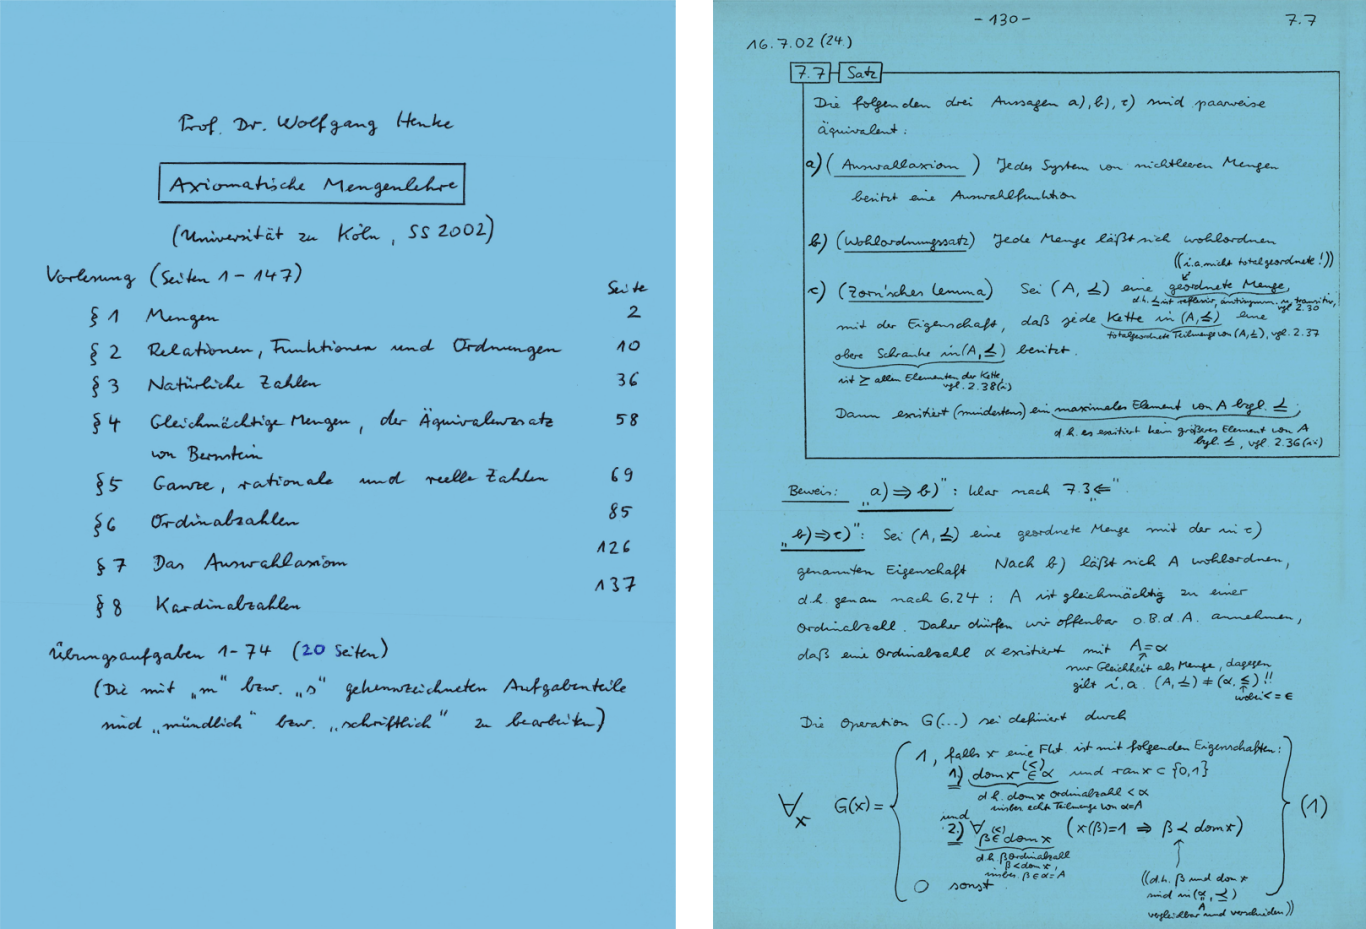 Prof. Dr. Wolfgang Henke
Axiomatische Mengenlehre
(Universität zu Köln, SS 2002)
Vorlesung (Seiten 1 - 147)
Seite
§ 1 Mengen 2
§ 2 Relationen, Funktionen und Ordnungen 10
§ 3 Natürliche Zahlen 36
§ 4 Gleichmächtige Mengen, der Äquivalenzsatz 58
von Bernstein
§ 5 Ganze, rationale und reelle Zahlen 69
§ 6 Ordinalzahlen 85
§ 7 Das Auswahlaxiom 126
§ 8 Kardinalzahlen 137
Übungsaufgaben 1-74 (20 Seiten)
(Die mit „m“ bzw. „s“ gekennzeichneten Aufgabenteile
sind „mündlich“ bzw. „schriftlich“ zu bearbeiten)
- 130 - 7.7
16.7.02 (24.)
7.7 Satz
Die folgenden drei Aussagen a), b), c) sind paarweise
äquivalent:
a) (Auswahlaxiom) Jedes System von nichtleeren Mengen
besitzt eine Auswahlfunktion
b) (Wohlordnungssatz) Jede Menge läßt sich wohlordnen
((i.a. nicht totalgeordnete!))
c) (Zorn'sches Lemma) Sei (A, ≤) eine geordnete Menge,
d.h. ≤ ist reflexiv, antisymm. u. transitiv, vgl. 2.30
mit der Eigenschaft, daß jede Kette in (A, ≤) eine
totalgeordnete Teilmenge von (A, ≤), vgl. 2.37
obere Schranke in (A, ≤) besitzt.
ist ≥ allen Elementen der Kette,
vgl. 2.38(i)
Dann existiert (mindestens) ein maximales Element von A bzgl. ≤;
d.h. es existiert kein größeres Element von A
bzgl. ≤, vgl. 2.36
Beweis: „a) ⇒ b)“: klar nach 7.3 „⇐“.
„b) ⇒ c)“: Sei (A, ≤) eine geordnete Menge mit der in c)
genannten Eigenschaft Nach b) läßt sich A wohlordnen,
d.h. genau nach 6.24: A ist gleichmächtig zu einer
Ordinalzahl. Daher dürfen wir offenbar o.B.d.A. annehmen,
daß eine Ordinalzahl α existiert mit A = α
nur Gleichheit als Menge, dagegen
gilt i.a. (A, ≤) ≠ (α, ≤) !!
wobei < = ∈
Die Operation G(...) sei definiert durch
1, falls x eine Fkt. ist mit folgenden Eigenschaften:
1) dom x ∈ α und ran x ⊂ {0,1}
(<)
d.h. dom x Ordinalzahl < α
insbes. echte Teilmenge von α=A
∀x G(x) = (1)
und
2.) ∀ β ∈ dom x (x(β)=1 ⇒ β ≺ dom x)
(<)
d.h. β Ordinalzahl
β < dom x,
insbes. β ∈ α = A
0 sonst
((d.h. β und dom x
sind in (α, ≤)
A
vergleichbar und verschieden))